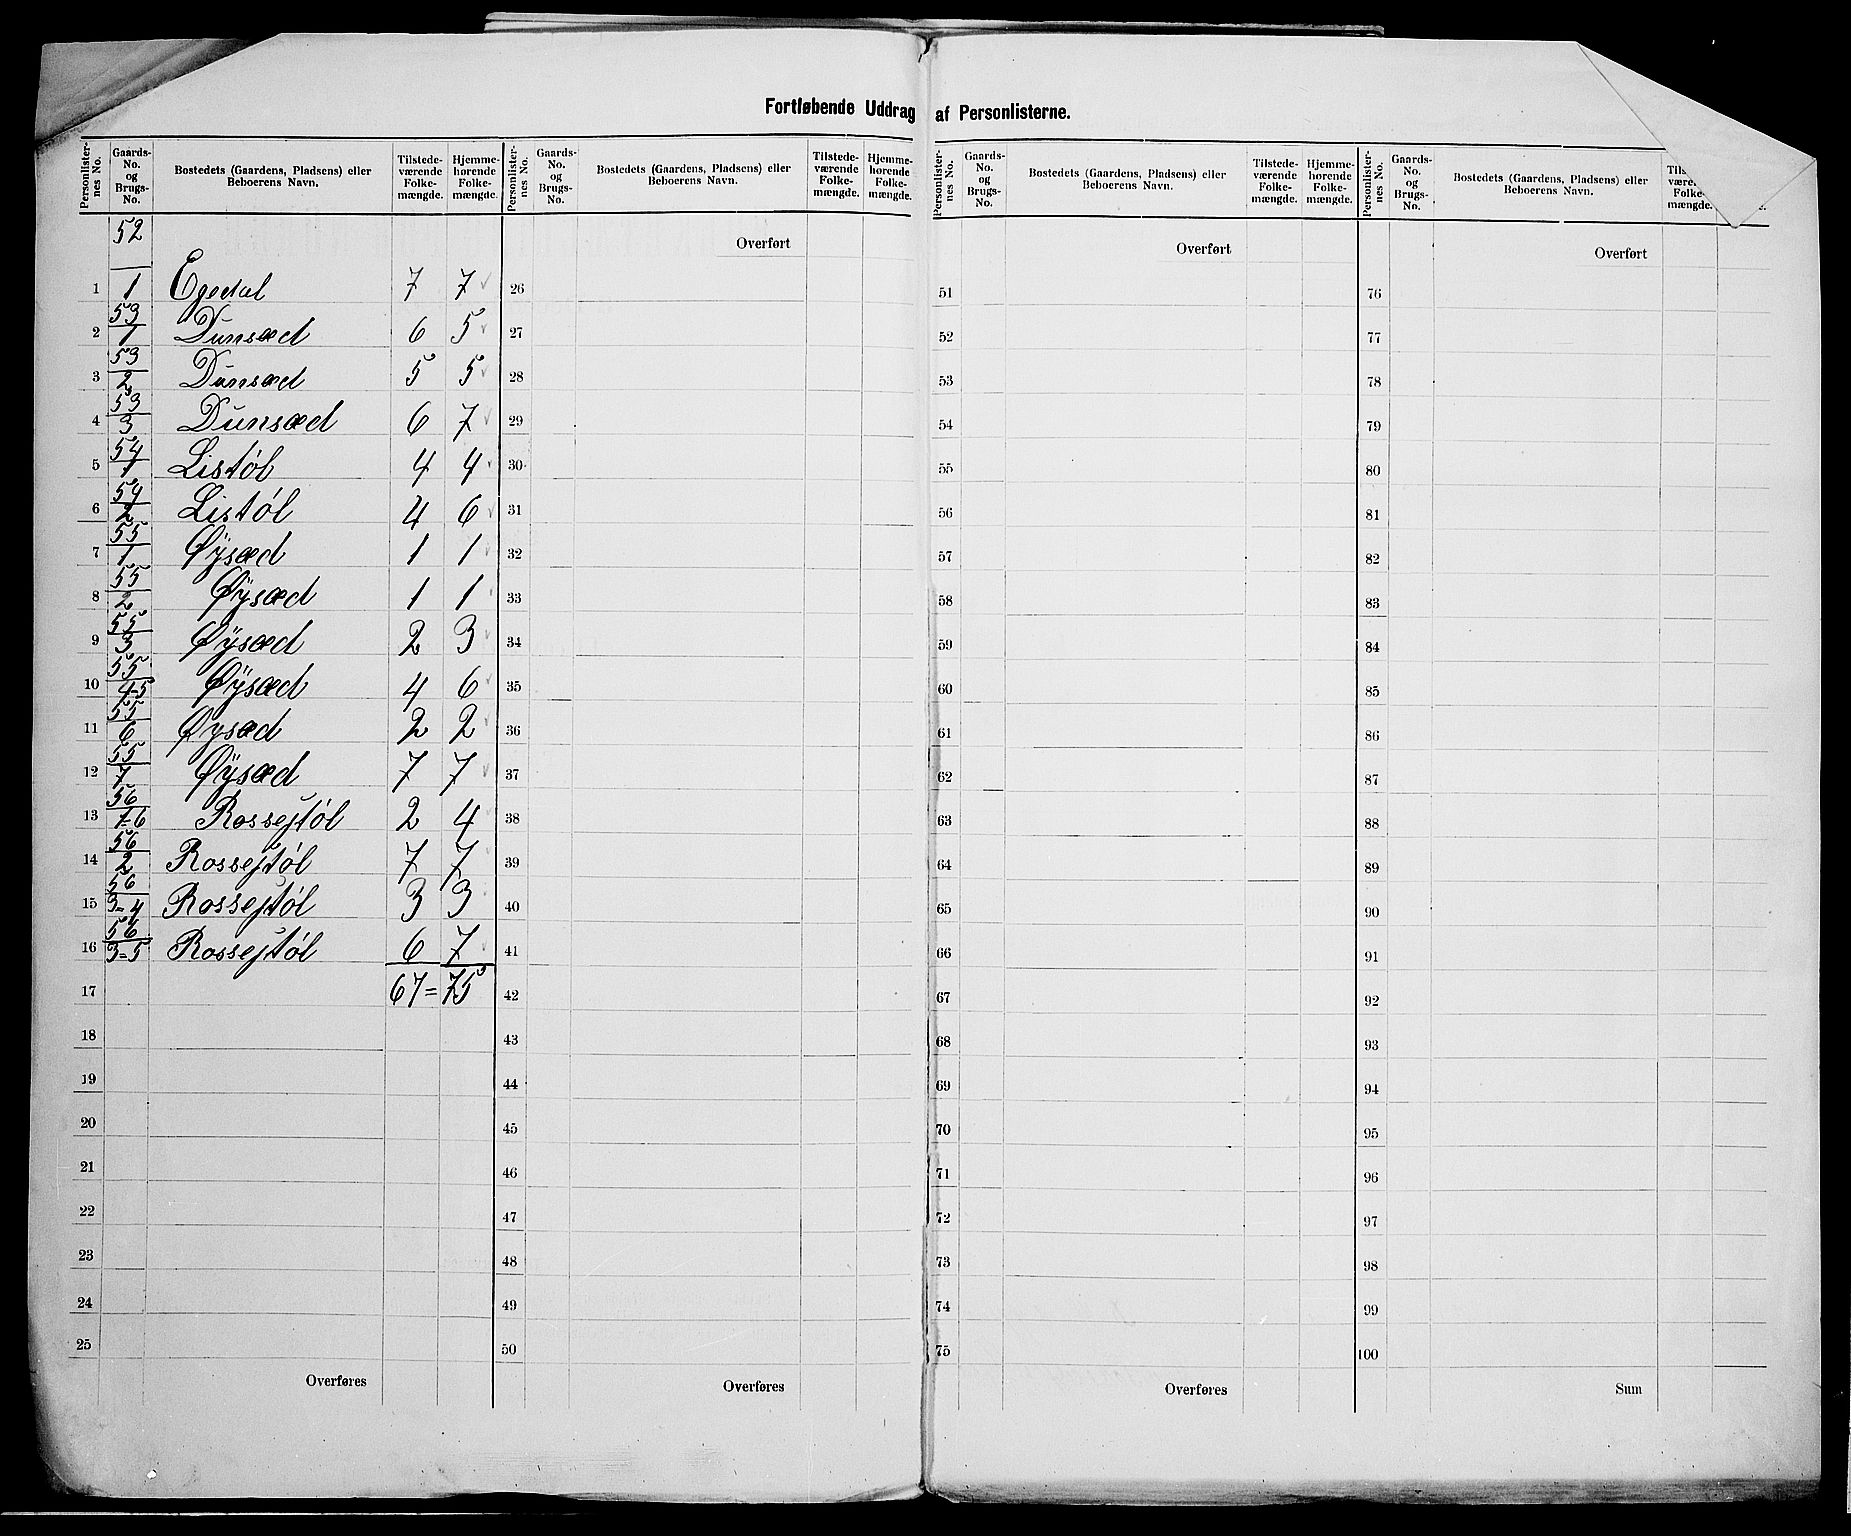 Fortløbende Uddrag af Personlisterne.
Personlister-nes No. | Gaards-No. og Brugs-No. | Bostedets (Gaardens, Pladsens) eller Beboerens Navn. | Tilstede-værende Folke-mængde. | Hjemme-hørende Folke-mængde.
1 | 52/1 | Egedal | 7 | 7
2 | 53/1 | Dunsæd | 6 | 5
3 | 53/2 | Dunsæd | 5 | 5
4 | 53/3 | Dunsæd | 6 | 7
5 | 54/1 | Listøl | 4 | 4
6 | 54/2 | Listøl | 4 | 6
7 | 55/1 | Øysæd | 1 | 1
8 | 55/2 | Øysæd | 1 | 1
9 | 55/3 | Øysæd | 2 | 3
10 | 55/4-5 | Øysæd | 4 | 6
11 | 55/6 | Øysæd | 2 | 2
12 | 55/7 | Øysæd | 7 | 7
13 | 56/1-6 | Rossejtøl | 2 | 4
14 | 56/2 | Rossejtøl | 7 | 7
15 | 56/3=4 | Rossejtøl | 3 | 3
16 | 56/3=5 | Rossejtøl | 6 | 7
17 | 67 = 75
18
19
20
21
22
23
24
25
Overføres
Personlister-nes No. | Gaards-No. og Brugs-No. | Bostedets (Gaardens, Pladsens) eller Beboerens Navn. | Tilstede-værende Folke-mængde. | Hjemme-hørende Folke-mængde.
Overført
26
27
28
29
30
31
32
33
34
35
36
37
38
39
40
41
42
43
44
45
46
47
48
49
50
Overføres
Personlister-nes No. | Gaards-No. og Brugs-No. | Bostedets (Gaardens, Pladsens) eller Beboerens Navn. | Tilstede-værende Folke-mængde. | Hjemme-hørende Folke-mængde.
Overført
51
52
53
54
55
56
57
58
59
60
61
62
63
64
65
66
67
68
69
70
71
72
73
74
75
Overføres
Personlister-nes No. | Gaards-No. og Brugs-No. | Bostedets (Gaardens, Pladsens) eller Beboerens Navn. | Folke-mængde.
Overført
76
77
78
79
80
81
82
83
84
85
86
87
88
89
90
91
92
93
94
95
96
97
98
99
100
Sum